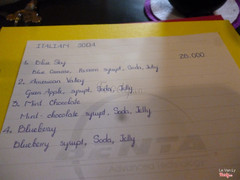 ITALIAN SODA
1. Blue Sky 25.000
Blue Curacao, Banana syrupt, Soda, Jelly
2. Amazonian Valley
Green Apple, syrupt, Soda, Jelly
3. Mint Chocolate
Mint chocolate syrupt, Soda, Jelly
4. Blueberry
Blueberry syrupt, Soda, Jelly